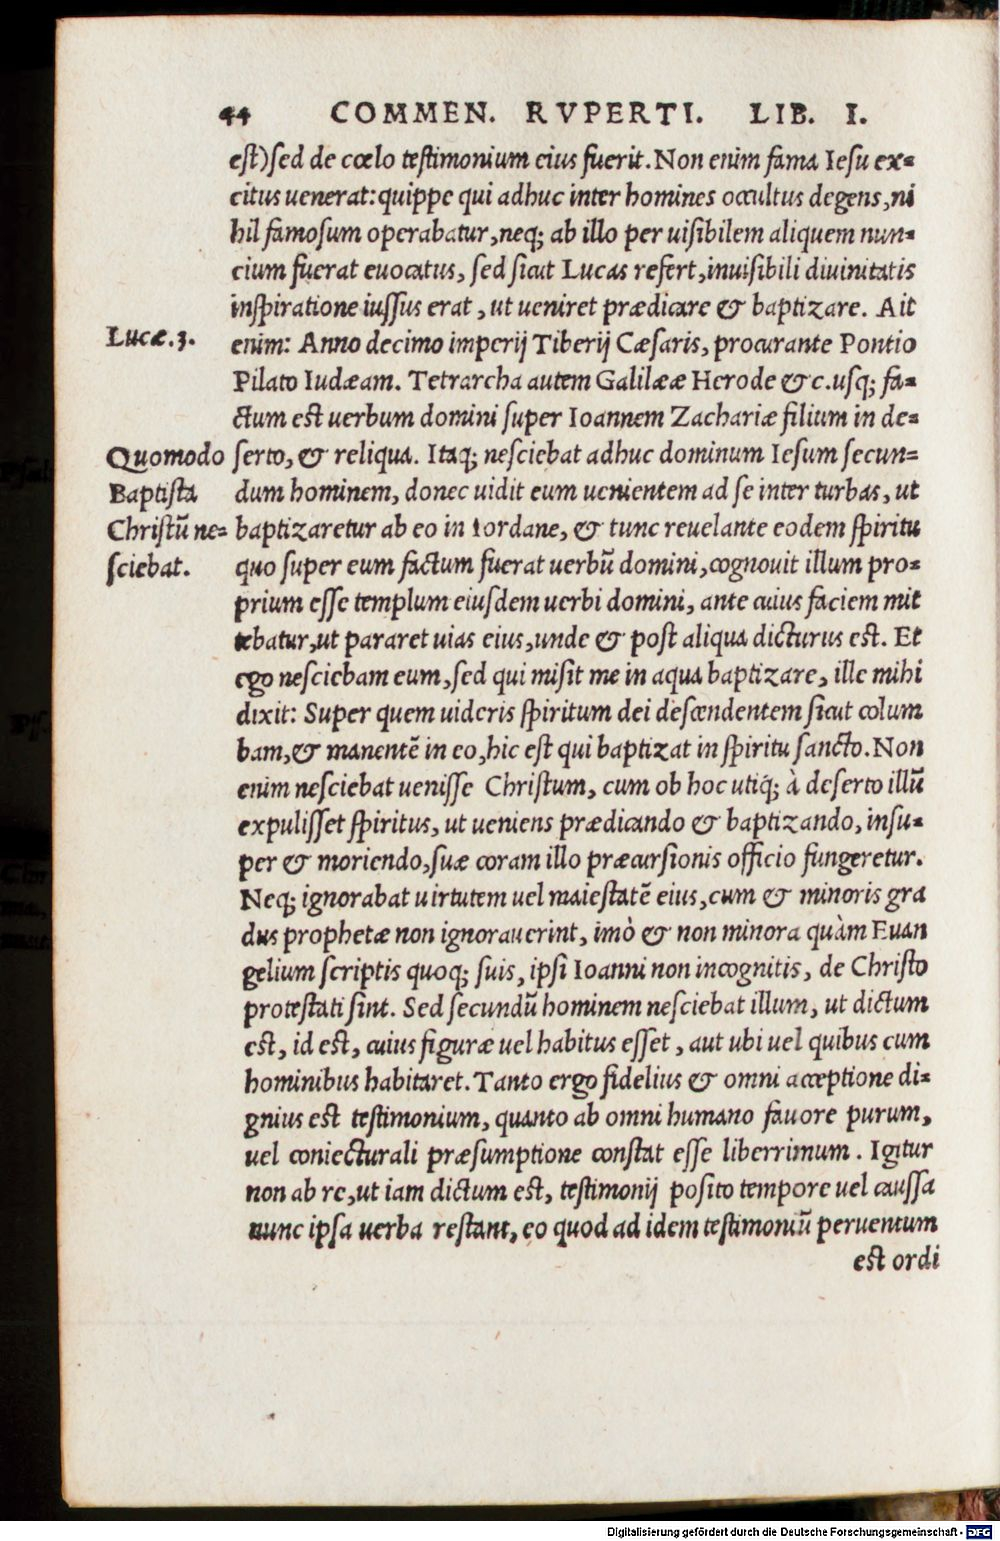 44 COMMEN. RVPERTI. LIB. I.
est) sed de cœlo testimonium eius fuerit. Non enim fama Iesu ex-
citus uenerat: quippe qui adhuc inter homines occultus degens, ni
hil famosum operabatur, neq; ab illo per uisibilem aliquem nun-
cium fuerat euocatus, sed sicut Lucas refert, inuisibili diuinitatis
inspiratione iussus erat, ut ueniret prædicare & baptizare. Ait
Lucæ.3.
enim: Anno decimo imperij Tiberij Cæsaris, procurante Pontio
Pilato Iudæam. Tetrarcha autem Galilææ Herode &c. usq; fa-
ctum est uerbum domini super Ioannem Zachariæ filium in de-
Quomodo
serto, & reliqua. Itaq; nesciebat adhuc dominum Iesum secun-
Baptista
dum hominem, donec uidit eum uenientem ad se inter turbas, ut
Christū ne-
baptizaretur ab eo in Iordane, & tunc reuelante eodem spiritu
sciebat.
quo super eum factum fuerat uerbū domini, cognouit illum pro-
prium esse templum eiusdem uerbi domini, ante cuius faciem mit
tebatur, ut pararet uias eius, unde & post aliqua dicturus est. Et
ego nesciebam eum, sed qui misit me in aqua baptizare, ille mihi
dixit: Super quem uideris spiritum dei descendentem sicut colum
bam, & manentē in eo, hic est qui baptizat in spiritu sancto. Non
enim nesciebat uenisse Christum, cum ob hoc utiq́; à deserto illū
expulisset spiritus, ut ueniens prædicando & baptizando, insu-
per & moriendo, suæ coram illo præcursionis officio fungeretur.
Neq; ignorabat uirtutem uel maiestatē eius, cum & minoris gra
dus prophetæ non ignorauerint, imò & non minora quàm Euan
gelium scriptis quoq; suis, ipsi Ioanni non incognitis, de Christo
protestati sint. Sed secundū hominem nesciebat illum, ut dictum
est, id est, cuius figuræ uel habitus esset, aut ubi uel quibus cum
hominibus habitaret. Tanto ergo fidelius & omni acceptione di-
gnius est testimonium, quanto ab omni humano fauore purum,
uel coniecturali præsumptione constat esse liberrimum. Igitur
non ab re, ut iam dictum est, testimonij posito tempore uel caussa
nunc ipsa uerba restant, eo quod ad idem testimoniū peruentum
est ordi
Digitalisierung gefördert durch die Deutsche Forschungsgemeinschaft - DFG